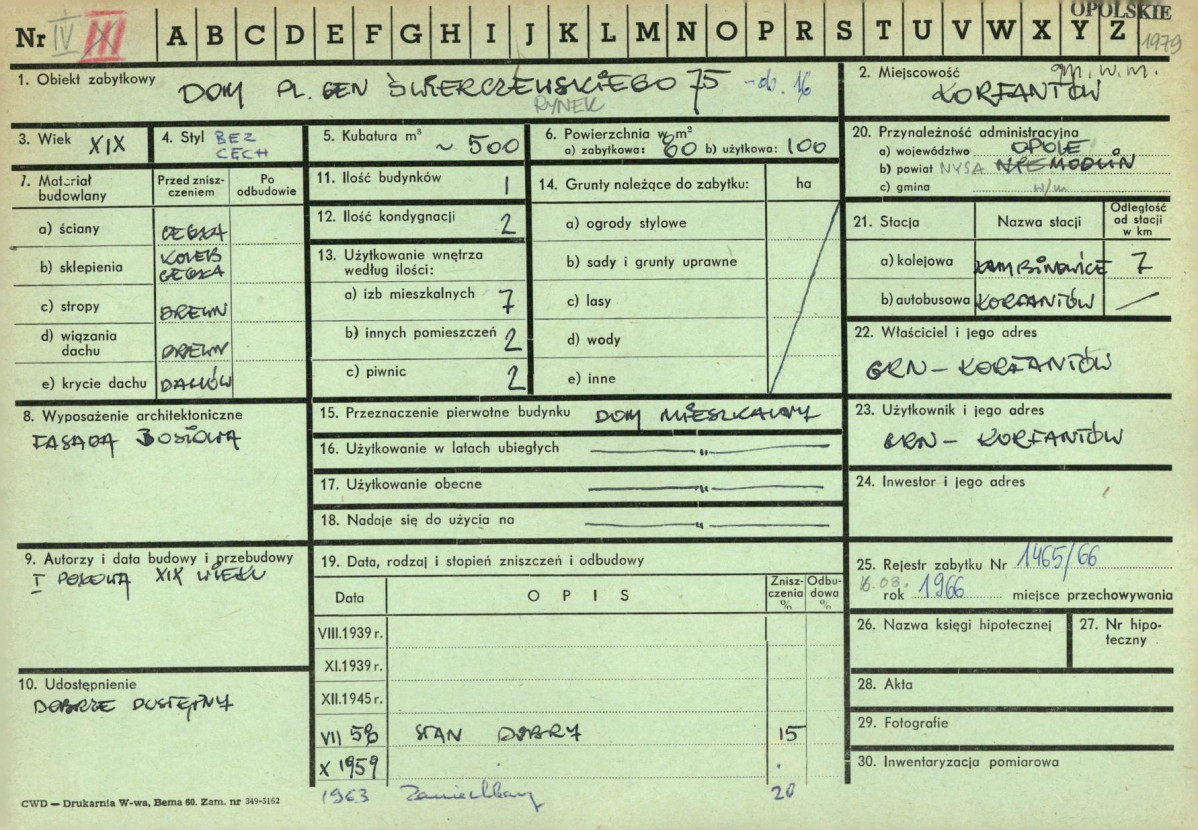 OPOLSKIE
1979
Nr IV III A B C D E F G H I J K L M N O P R S T U V W X Y Z
1. Obiekt zabytkowy DOM PL. GEN ŚWIERCZEWSKIEGO 75 - ob. 16
RYNEK
2. Miejscowość gm. w.m.
KORFANTÓW
3. Wiek XIX
4. Styl BEZ
CECH
5. Kubatura m³ ~ 500
6. Powierzchnia w m²
a) zabytkowa: 60 b) użytkowa: 100
20. Przynależność administracyjna
a) województwo OPOLE
b) powiat NYSA NIEMODLIN
c) gmina w/m
7. Materiał budowlany
Przed zniszczeniem
Po odbudowie
a) ściany CEGŁA
b) sklepienia KOLEB
CEGŁA
c) stropy DREWN
d) wiązania dachu DREWN
e) krycie dachu DACHÓW
11. Ilość budynków 1
12. Ilość kondygnacji 2
13. Użytkowanie wnętrza
według ilości:
a) izb mieszkalnych 7
b) innych pomieszczeń 2
c) piwnic 2
14. Grunty należące do zabytku: ha
a) ogrody stylowe
b) sady i grunty uprawne
c) lasy
d) wody
e) inne
21. Stacja
Nazwa stacji
Odległość
od stacji
w km
a) kolejowa ŁAMBINOWICE 7
b) autobusowa KORFANTÓW —
22. Właściciel i jego adres
GRN - KORFANTÓW
8. Wyposażenie architektoniczne
FASADA BONIOWA
15. Przeznaczenie pierwotne budynku DOM MIESZKALNY
16. Użytkowanie w latach ubiegłych — " —
17. Użytkowanie obecne — " —
18. Nadaje się do użycia na — " —
23. Użytkownik i jego adres
GRN - KORFANTÓW
24. Inwestor i jego adres
9. Autorzy i data budowy i przebudowy
I POŁOWA XIX WIEKU
10. Udostępnienie
DOBRZE DOSTĘPNY
19. Data, rodzaj i stopień zniszczeń i odbudowy
Data
OPIS
Zniszczenia %
Odbudowa %
VIII.1939 r.
XI.1939 r.
XII.1945 r.
VII 58 STAN DOBRY 15
X 1959
1963 Zaniedbany 20
25. Rejestr zabytku Nr 1465/66
16.03.
rok 1966 miejsce przechowywania
26. Nazwa księgi hipotecznej
27. Nr hipoteczny
28. Akta
29. Fotografie
30. Inwentaryzacja pomiarowa
CWD — Drukarnia W-wa, Bema 60. Zam. nr 349-5162